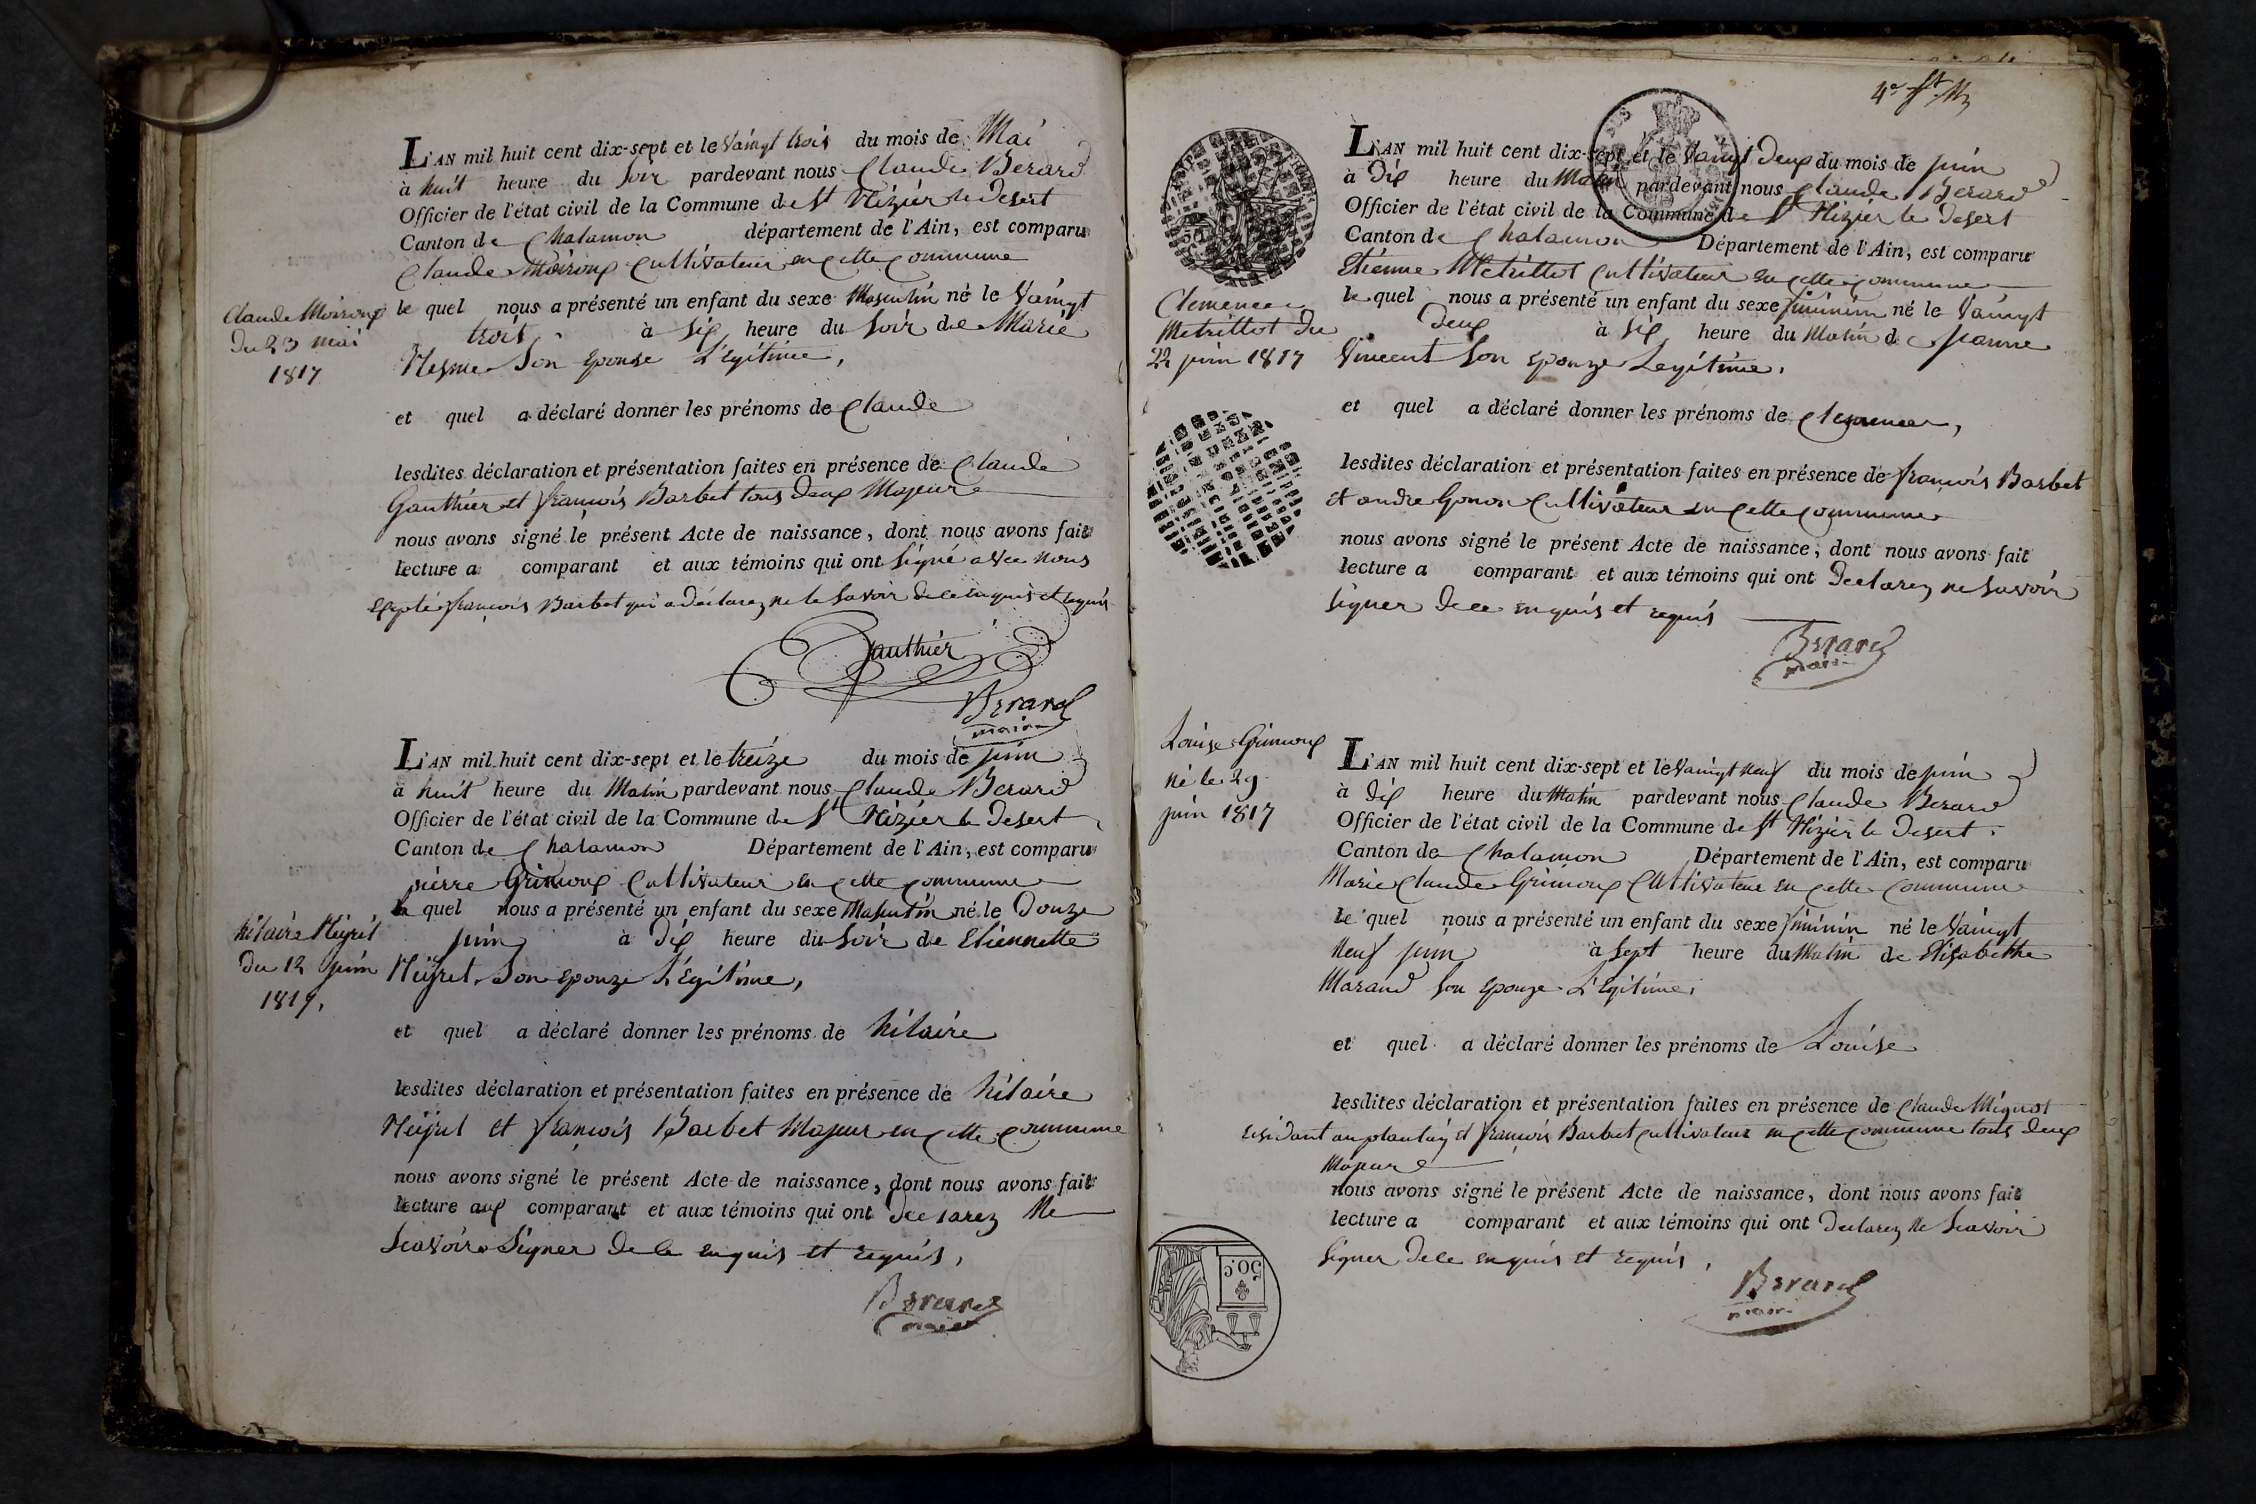 L'AN mil huit cent dix-sept et le vaingt trois du mois de Mai
à huit heure du soir pardevant nous Claude Berard
Officier de l'état civil de la Commune de St Nizier le Desert
Canton de Chalamon département de l'Ain, est comparu
Claude Moiroux Cultivateur en cette commune
le quel nous a présenté un enfant du sexe Masculin né le Vaingt
trois à six heure du soir de Marie
Nesme son epouse Légitime,
et quel a déclaré donner les prénoms de Claude
lesdites déclaration et présentation faites en présence de Claude
Gauthier et françois Barbet tous deux Majeure
nous avons signé le présent Acte de naissance, dont nous avons fait
lecture a comparant et aux témoins qui ont signé avec nous
Exepté françois Barbet qui a déclarez ne le savoir de ce enquis et requis
Gauthier
Berard
maire
Claude Moiroux
du 23 mai
1817
L'AN mil huit cent dix-sept et le treize du mois de juin
à huit heure du Matin pardevant nous Claude Berard
Officier de l'état civil de la Commune de St Nizier le Desert
Canton de Chalamon Département de l'Ain, est comparu
pierre Grimoux Cultivateur en cette commune
le quel nous a présenté un enfant du sexe Masculin né le Douze
juin à dix heure du soir de Etiennette
Néyret son epouze Légitime,
et quel a déclaré donner les prénoms de hilaire
lesdites déclaration et présentation faites en présence de hilaire
Néyret et françois Barbet Majeur en cette commune
nous avons signé le présent Acte de naissance, dont nous avons fait
lecture aux comparant et aux témoins qui ont declarez Ne
scavoire signer de ce enquis et requis,
Berard
maire
hilaire Néyret
du 12 juin
1817,
4e
L'AN mil huit cent dix-sept et le Vaingt deux du mois de juin
à dix heure du Matin pardevant nous Claude Berard
Officier de l'état civil de la Commune de St Nizier le Desert
Canton de Chalamon Département de l'Ain, est comparu
Etienne Metrillot Cultivateur en cette commune
le quel nous a présenté un enfant du sexe féminin né le Vaingt
deux à six heure du Matin de Jeanne
Vincent son epouze Legitime,
et quel a déclaré donner les prénoms de Clemence,
lesdites déclaration et présentation faites en présence de françois Barbet
et andre Gonon Cultivateur en cette commune
nous avons signé le présent Acte de naissance, dont nous avons fait
lecture a comparant et aux témoins qui ont Declarez ne savoir
signer de ce enquis et requis
Berard
maire
Clemence
Metrillot du
22 juin 1817
Louise Grimoux
né le 29
juin 1817
L'AN mil huit cent dix-sept et le Vaingt neuf du mois de juin
à dix heure du Matin pardevant nous Claude Berard
Officier de l'état civil de la Commune de St Nizier le Desert
Canton de Chalamon Département de l'Ain, est comparu
Marie Claude Grimoux Cultivateur en cette commune
le quel nous a présenté un enfant du sexe féminin né le Vaingt
Neuf juin à sept heure du Matin de Elisabethe
Marand son epouze Légitime,
et quel a déclaré donner les prénoms de Louise
lesdites déclaration et présentation faites en présence de Claude Mignot
residant au plantay et françois Barbet Cultivateur en cette commune tous deux
Majeure
nous avons signé le présent Acte de naissance, dont nous avons fait
lecture a comparant et aux témoins qui ont Declarez ne scavoir
signer de ce enquis et requis,
Berard
maire
50.C